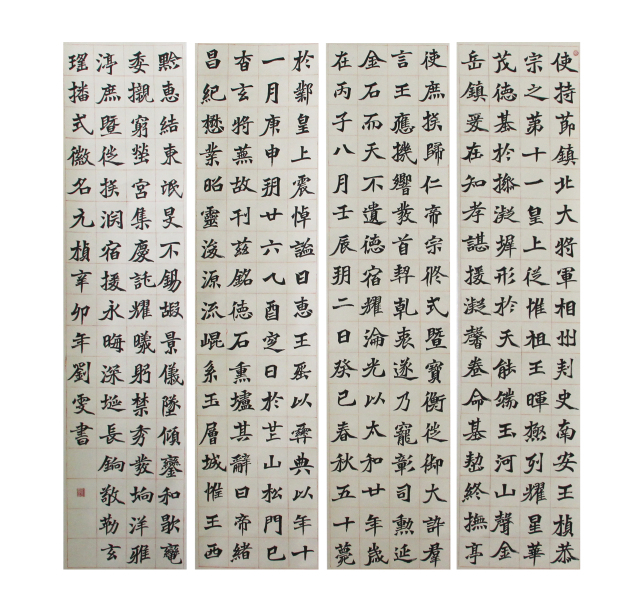 使持莭鎮北大將軍相州刾史南安王楨恭
宗之苐十一皇上從惟祖王暉極列耀星華
茂德基於凝墀形於天能端玉河山聲金
岳鎮爰在知孝諶援凝馨卷命基終撫亭
使庶族歸仁帝宗攸式暨寶衡從御大許羣
言王應機響發首契乾衷遂乃寵彰司勳延
金石而天不遺德宿耀淪光以太和廿年歲
在丙子八月壬辰玥二日癸巳春秋五十薨
於鄴皇上震悼諡曰惠王塟以彝典以年十
一月庚申玥廿六乙酉窆日於芒山松門已
杳玄將蕪故刊茲銘德石熏壚其辭曰帝緒
昌紀懋業昭靈浚源流崐系玉層城惟王西
黔惠結東氓旻不錫嘏景儀墜傾鑾和歇奄
委櫬窮塋宮集慶託耀曦躬禁秀發坰洋雅
渟庶暨從族潤宿援永晦深埏長銷敬勒玄
瑤播式徽名元楨辛卯年劉雯書